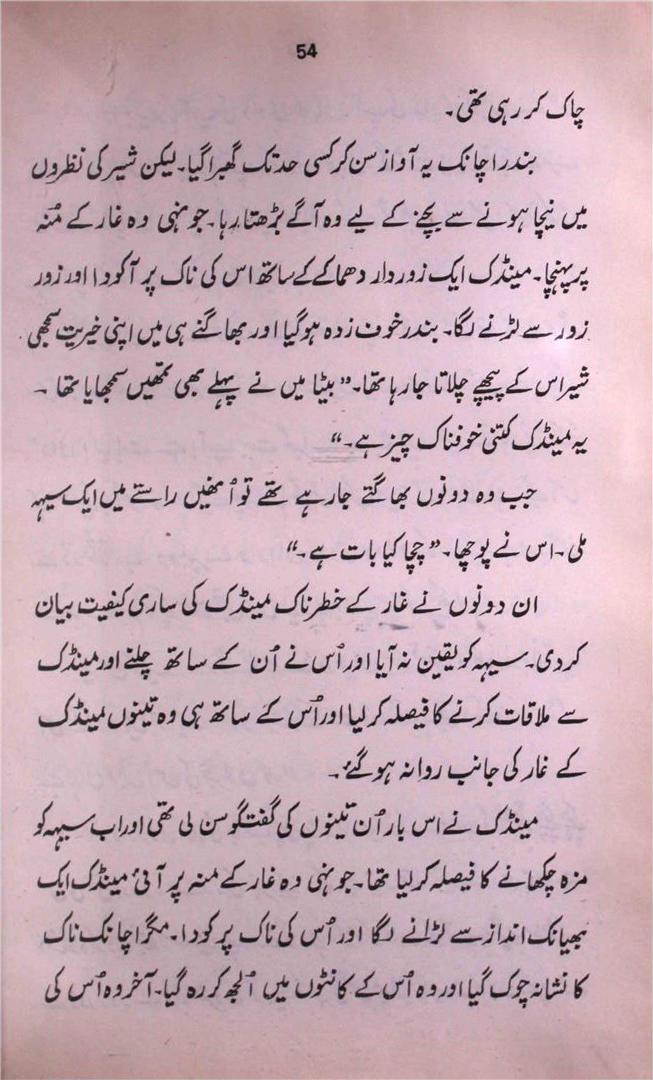 54
چاک کر رہی تھی۔
بندر اچانک یہ آواز سن کر کسی حد تک گھبرا گیا۔ لیکن شیر کی نظروں
میں نیچا ہونے سے بچنے کے لیے وہ آگے بڑھتا رہا۔ جونہی وہ غار کے مُنہ
پر پہنچا۔ مینڈک ایک زور دار دھماکے کے ساتھ اس کی ناک پر آکودا اور زور
زور سے لڑنے لگا۔ بندر خوف زدہ ہوگیا اور بھاگنے ہی میں اپنی خیریت سمجھی
شیر اس کے پیچھے چلاتا جارہا تھا۔ ”بیٹا میں نے پہلے بھی تمھیں سمجھایا تھا ۔
یہ مینڈک کتنی خوفناک چیز ہے۔“
جب وہ دونوں بھاگتے جارہے تھے تو اُنھیں راستے میں ایک سیہہ
ملی۔ اس نے پوچھا۔ ”چچا کیا بات ہے۔“
ان دونوں نے غار کے خطرناک مینڈک کی ساری کیفیت بیان
کردی۔ سیہہ کو یقین نہ آیا اور اُس نے اُن کے ساتھ چلنے اور مینڈک
سے ملاقات کرنے کا فیصلہ کرلیا اور اُس کے ساتھ ہی وہ تینوں مینڈک
کے غار کی جانب روانہ ہوگئے۔
مینڈک نے اس بار اُن تینوں کی گفتگو سن لی تھی اور اب سیہہ کو
مزہ چکھانے کا فیصلہ کرلیا تھا۔ جونہی وہ غار کے منہ پر آئی مینڈک ایک
بھیانک انداز سے لڑانے لگا اور اُس کی ناک پر کودا۔ مگر اچانک ناک
کا نشانہ چوک گیا اور وہ اُس کے کانٹوں میں اُلجھ کر رہ گیا۔ آخر وہ اُس کی